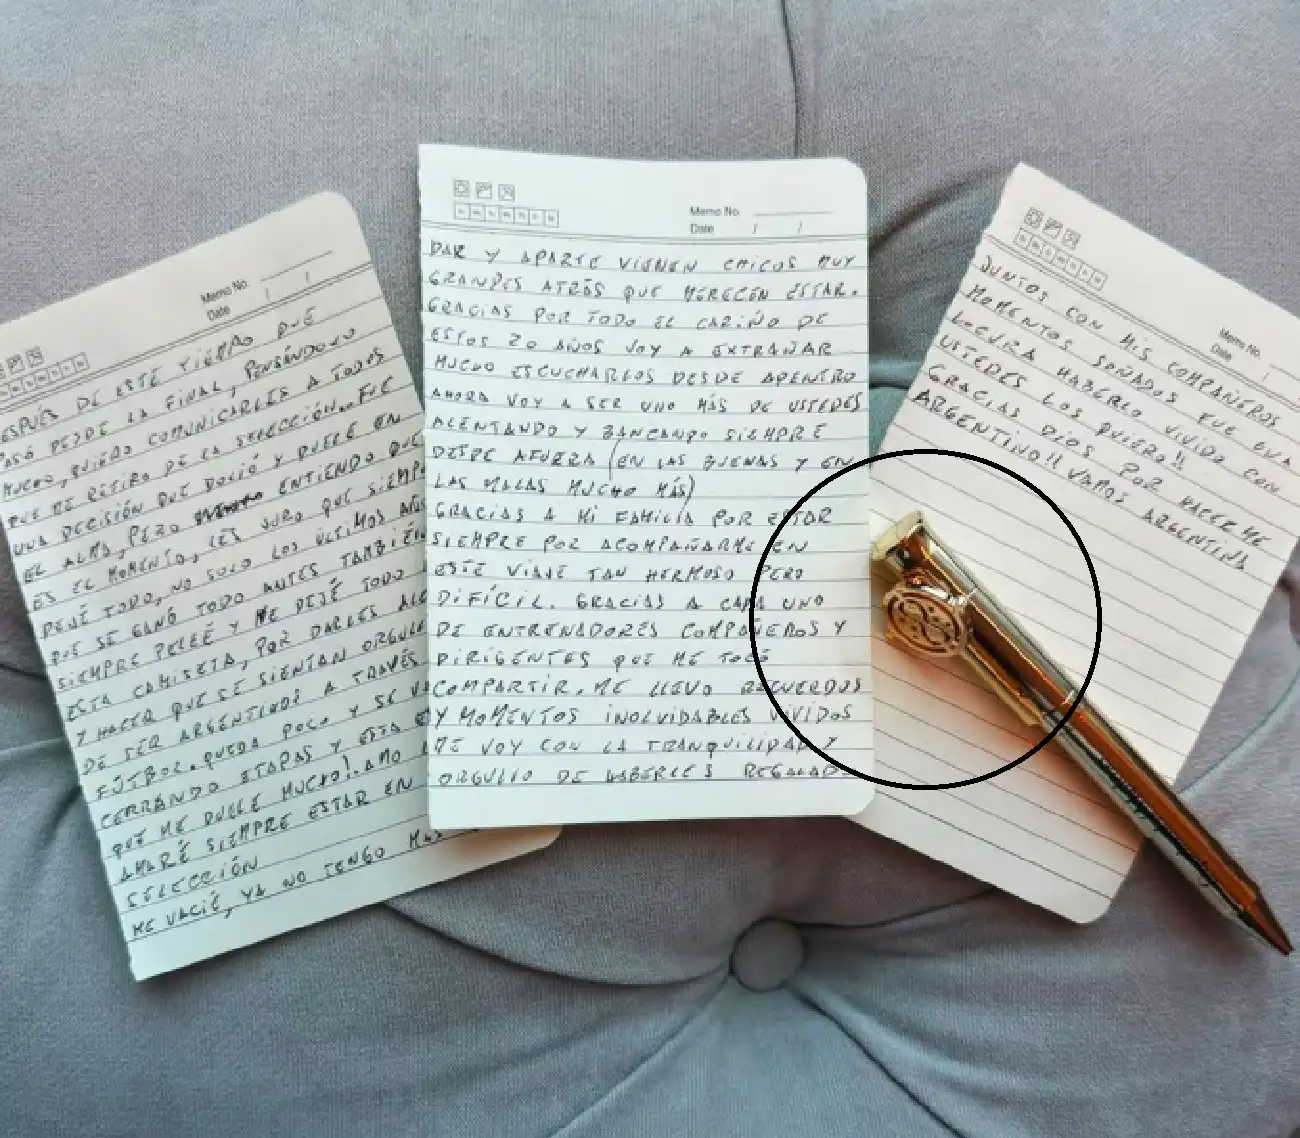 Memo No.
Date / /
ESPUÉS DE ESTE TIEMPO QUE
PASÓ DESDE LA FINAL, PENSÁNDOLO
MUCHO, QUIERO COMUNICARLES A TODOS
QUE ME RETIRO DE LA SELECCIÓN.. FUE
UNA DECISIÓN QUE DOLIÓ Y DUELE EN
EL ALMA, PERO ENTIENDO QUE
ES EL MOMENTO, LES JURO QUE SIEMP
DEJÉ TODO, NO SOLO LOS ÚLTIMOS AÑOS
QUE SE GANÓ TODO ANTES TAMBIÉN
SIEMPRE PELEÉ Y ME DEJÉ TODO
ESTA CAMISETA, POR DARLES ALE
Y HACER QUE SE SIENTAN ORGULL
DE SER ARGENTINOS A TRAVÉS
FÚTBOL. QUEDA POCO Y SE V
CERRANDO ETAPAS Y ESTA
QUE ME DUELE MUCHO!. AMO
AMARÉ SIEMPRE ESTAR EN
SELECCIÓN
ME VACIÉ, YA NO TENGO MAS
Memo No.
Date / /
DAR Y APARTE VIENEN CHICOS MUY
GRANDES ATRÁS QUE MERECEN ESTAR.
GRACIAS POR TODO EL CARIÑO DE
ESTOS 20 AÑOS VOY A EXTRAÑAR
MUCHO ESCUCHARLOS DESDE ADENTRO
AHORA VOY A SER UNO MÁS DE USTEDES
ALENTANDO Y BANCANDO SIEMPRE
DESDE AFUERA (EN LAS BUENAS Y EN
LAS MALAS MUCHO MÁS)
GRACIAS A MI FAMILIA POR ESTAR
SIEMPRE POR ACOMPAÑARME EN
ESTE VIAJE TAN HERMOSO PERO
DIFÍCIL. GRACIAS A CADA UNO
DE ENTRENADORES COMPAÑEROS Y
DIRIGENTES QUE ME TOCÓ
COMPARTIR. ME LLEVO RECUERDOS
Y MOMENTOS INOLVIDABLES VIVIDOS
ME VOY CON LA TRANQUILIDAD Y
ORGULLO DE HABERLES REGALADO
Memo No.
Date /
JUNTOS CON MIS COMPAÑEROS
MOMENTOS SOÑADOS FUE UNA
LOCURA HABERLO VIVIDO CON
USTEDES LOS QUIERO!!
GRACIAS DIOS POR HACERME
ARGENTINO!! VAMOS ARGENTINA